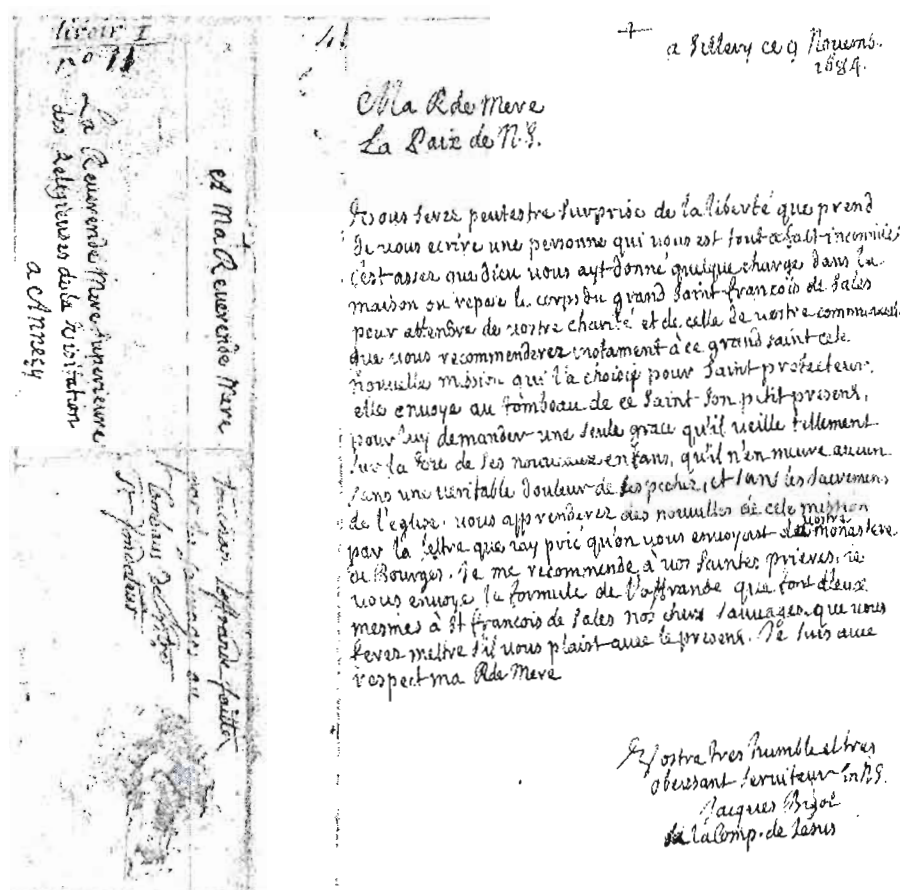 tiroir I
n° 11
La Reverende Mere Superieure
des Religieuses de la Visitation
a Annecy
A Ma Reverende Mere
touchant l'offrande faitte
par les sauvages au
tombeau de
St fondateur
a Sillery ce 9 Novemb.
1684.
Ma Rde Mere
La Paix de N.S.
Vous serez peutestre surprise de la liberté que prend
de vous ecrire une personne qui vous est tout a fait inconnuë
c'est assez que dieu vous ayt donné quelque charge dans la
maison ou repose le corps du grand saint françois de sales
pour attendre de vostre charité et de celle de vostre communauté
que vous recommenderez instament à ce grand saint cete
nouvelle mission qui l'a choisie pour saint protecteur.
elle envoye au tombeau de ce saint son petit present,
pour luy demander une seule grace qu'il veille tellement
sur la foie de ses nouveaux enfans, qu'il n'en meure aucun
sans une veritable douleur de ses pechez, et sans les sacremens
de l'eglise. vous apprenderez des nouvelles de cete mission
par la lettre que j'ay prié qu'on vous envoyast de vostre monastere
de Bourges. Je me recommende à vos saintes prieres, je
vous envoye la formule de l'offrande que font d'eux
mesmes à St françois de sales nos chers sauvages, que vous
ferez mettre s'il vous plaist avec le present. Je suis avec
respect ma Rde Mere
Vostre tres humble et tres
obeissant serviteur en N.S.
Jacques Bigot
de la Comp. de Jesus